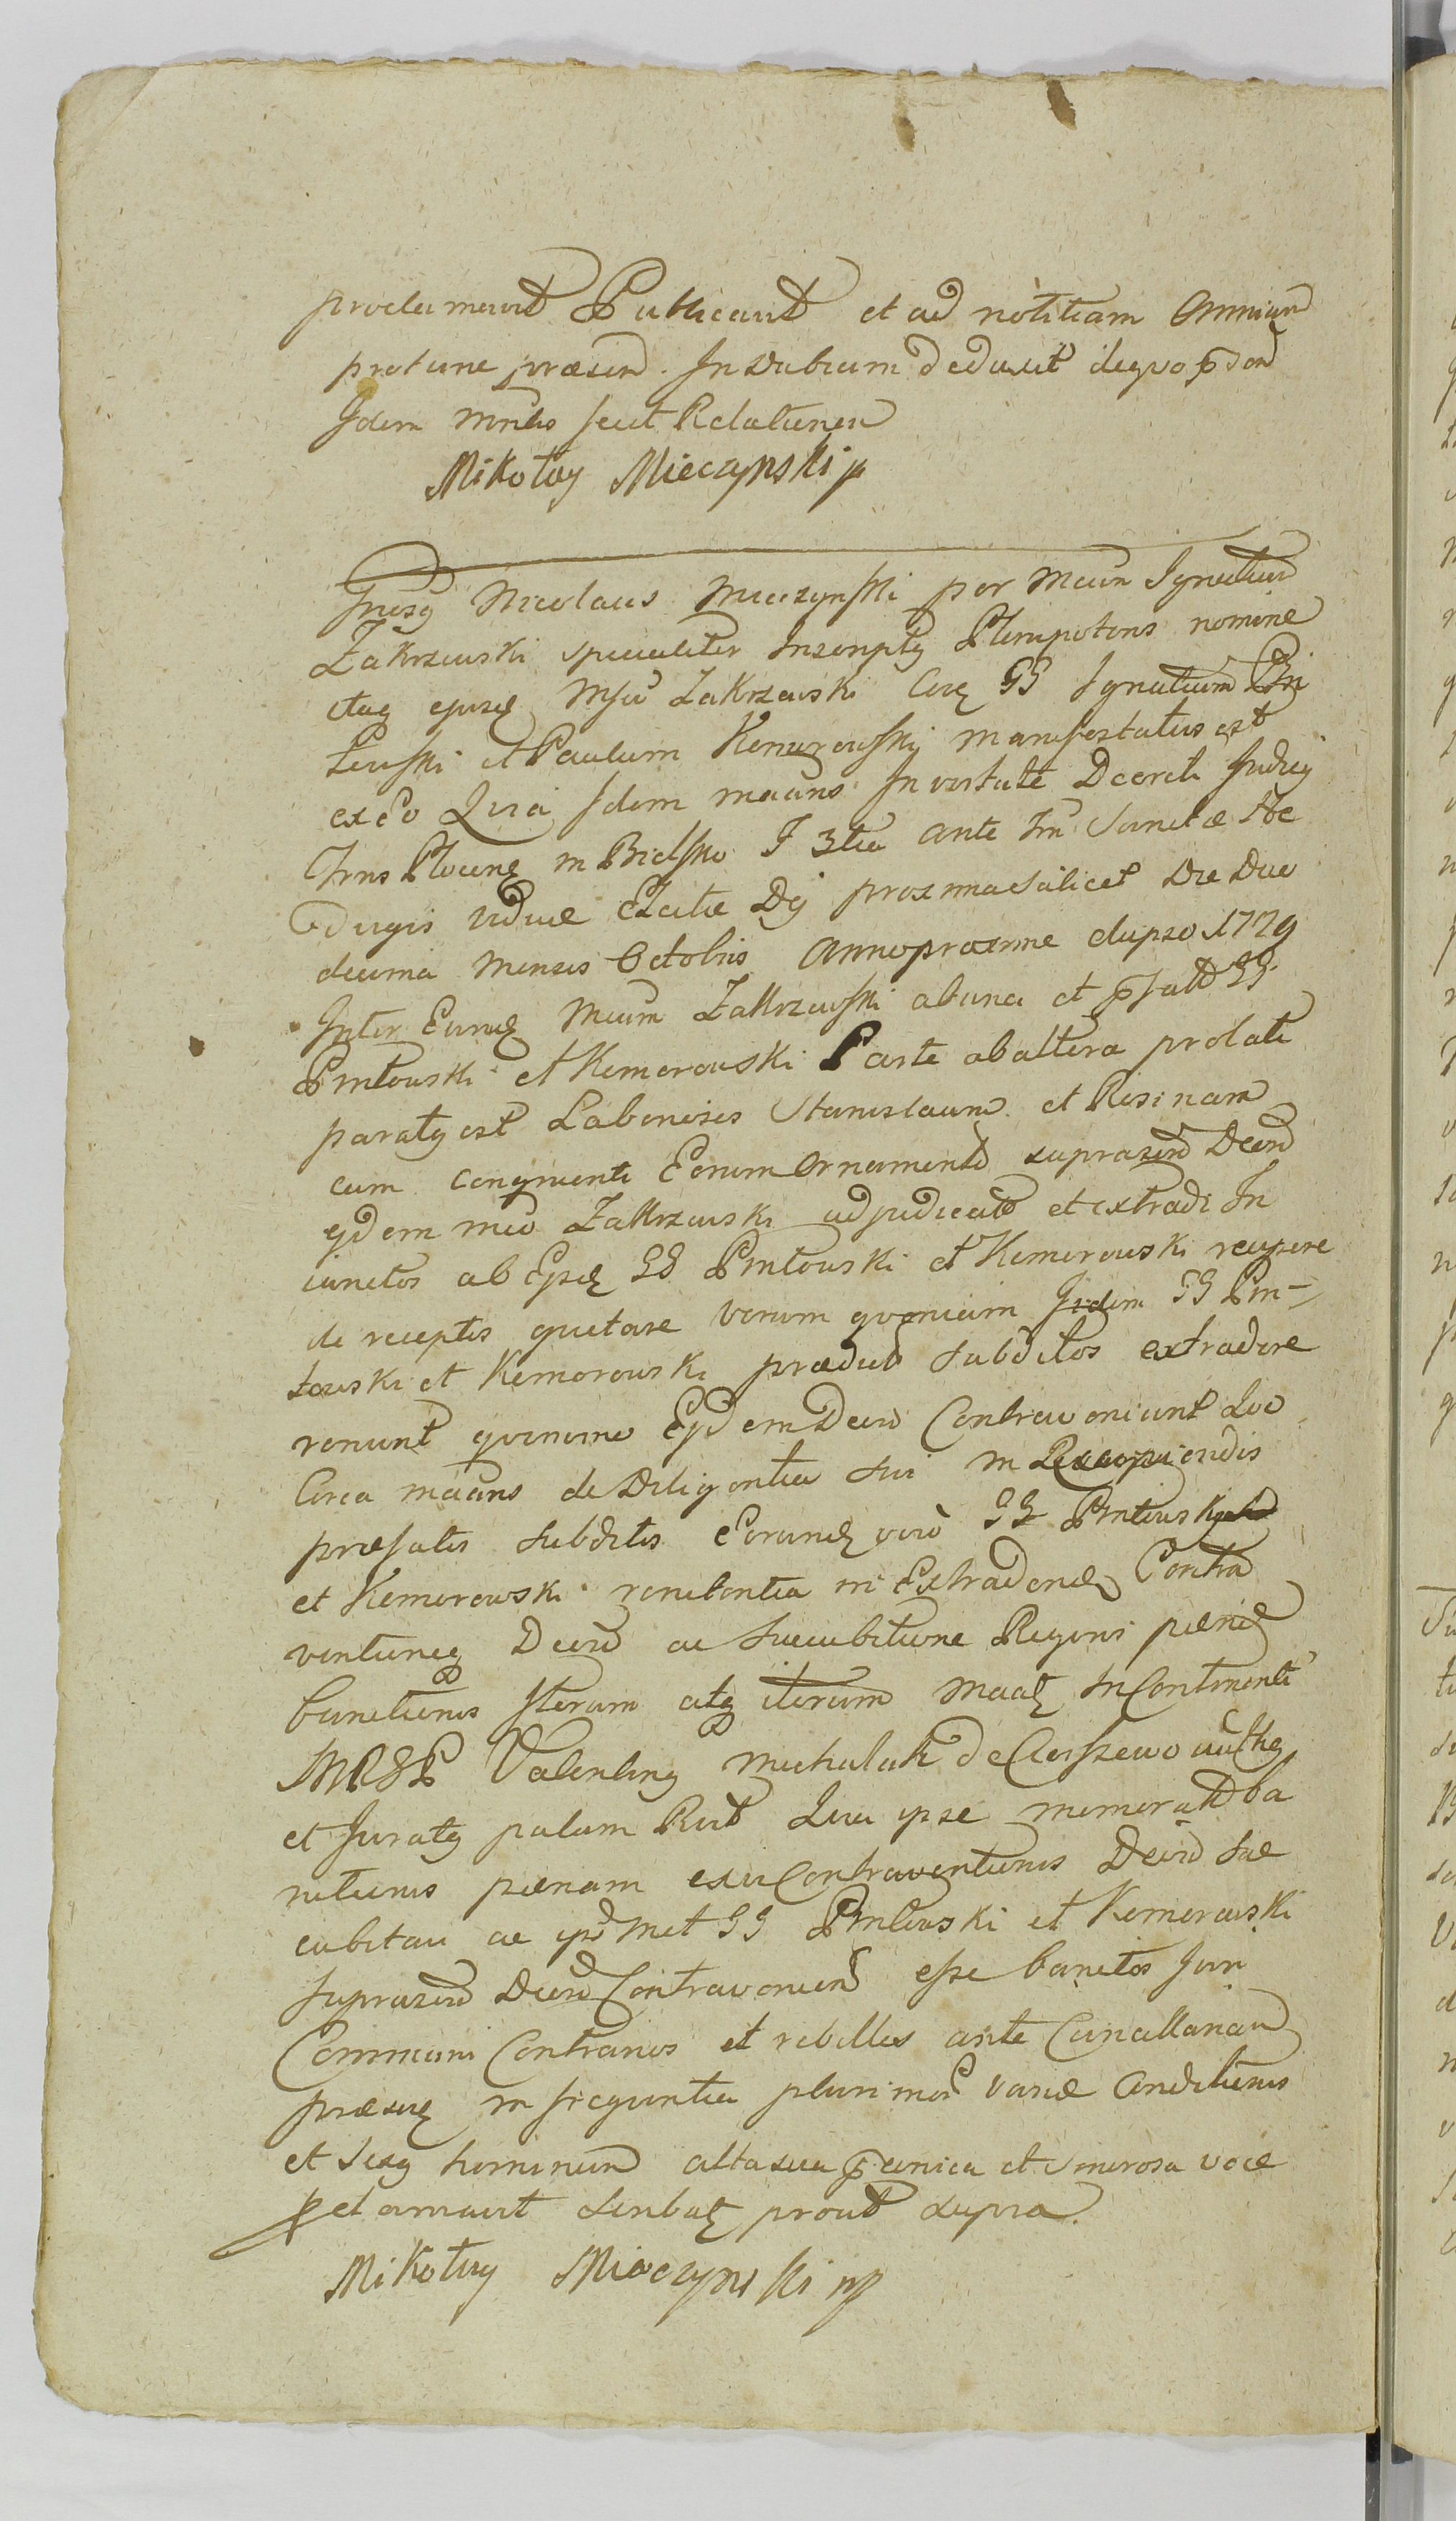 proclamavit Publicavit et ad notitiam Omnium
protunc præsen. Indubiam deduxit dequo
Idem Mnlis fecit Relationem
Mikołay Mieczynski
Nicolaus Mieczynski per Mcum Ignatium
Zakrzewski specialiter Inscriptg Plenipotens nomine
Mfci Zakrzewski GG Ignatium
et Paulum Kemorowski manifestatus est
exEo Quia Idem mcians In vertute Decreti Judicy
Trns Plocens in Bielsko F 3tia ante Sanctæ He
dvigis viduæ Electæ Dj proxima scilicet Die Duo
decima Mensis Octobris Anno proxime elapso 1779
Inter Eund Mcum Zakrzewski abuna et GG
Pintowski et Kemorowski Parte abaltera prolati
paratg est Labonioses Stanislaum et Rosinam
cum congruenti Eorum Ornamento suprascrip Decre
ejdem mco Zakrzewski adjudicatos et extradi In
iunctos ab GG Pintowski et Kemorowski recipere
de receptis quietare verum quoniam Iidem GG Pin-
towski et Kemorowski prædictos subditos extradere
renunt Ejdem Decro Contraveniunt Quo
Circa mcians de Diligentia sui in Recipiendis
præfatis subditis Eorund vero GG Pintowski
et Kemorowski renitentia in Extradend Contra
ventioneg Decri ac succubitione Regni pænæ
banitionis Iterum atg iterum In Continenti
MRSP Valenting Michalak de
et Juratg palam Rcit Quia ipse memorat ba
nitionis pænam exu Contraventionis Decri suc
cubitam ac GG Pintowski et Kemorowski
suprascrip Decri Contravenien esse banitos Juri
Communi Contrarios et rebelles ante Cancellariam
præsen in frequentia plurimor variæ Conditionis
et sexg hominum alta sua et sonorosa voce
proclamavit prout supra.
Mikołay Mieczynski mp